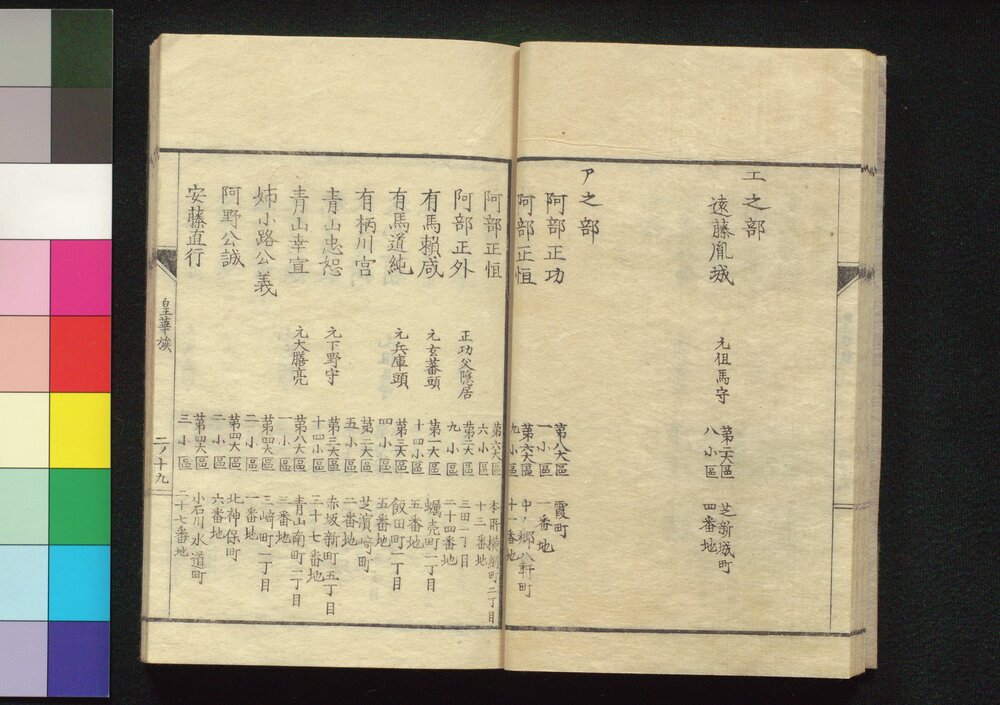 エ之部
遠藤胤城 元但馬守 第二大區 八小區 芝新城町 四番地
ア之部
阿部正功 第八大區 一小區 霞町 一番地
阿部正恒 第六大區 九小區 中ノ郷八軒町 十一番地
阿部正恒 第六大區 六小區 本所横網町二丁目 十三番地
阿部正外 正功父隠居 第二大區 九小區 三田一丁目 二十四番地
有馬頼咸 元玄蕃頭 第一大區 十四小區 蠣売町一丁目 五番地
有馬道純 元兵庫頭 第三大區 四小區 飯田町一丁目 五番地
有栖川宮 第二大區 五小區 芝濱﨑町 二番地
青山忠恕 元下野守 第三大區 十四小區 赤坂新町五丁目 三十七番地
青山幸宜 元大膳亮 第八大區 一小區 青山南町一丁目 三番地
姉小路公義 第四大區 二小區 三﨑町一丁目 一番地
阿野公誠 第四大區 二小區 北神保町 六番地
安藤直行 第四大區 三小區 小石川水道町 二十七番地
皇華族 二ノ十九